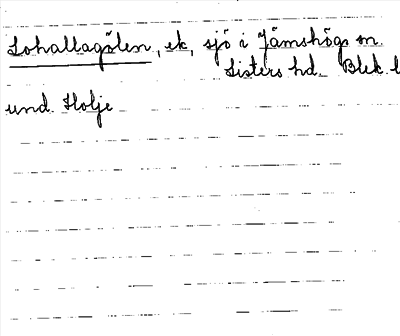 Lohallagölen, ek, sjö i Jämshögs sn
Listers hd. Blek. l
und. Holje